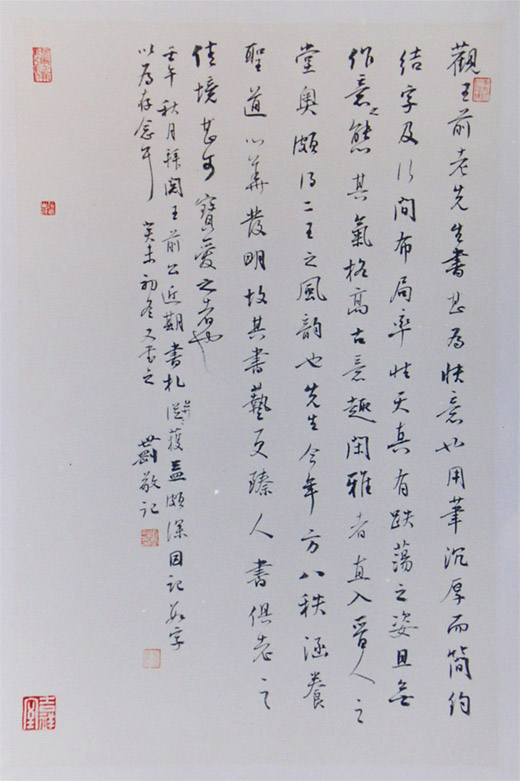 觀王前老先生書甚為快意也用筆沉厚而簡約
結字及行間布局率性天真有跌蕩之姿且無
作意之態其氣格高古意趣閑雅者直入晉人之
堂奧頗得二王之風韵也先生今年方八秩涵養
聖道以葺發明故其書藝更臻人書俱老之
佳境甚可寶愛之者也
壬午秋月拜閱王前公近期書札獲益頗深因記數字
以為存念耳 癸未初冬又書之 敬記